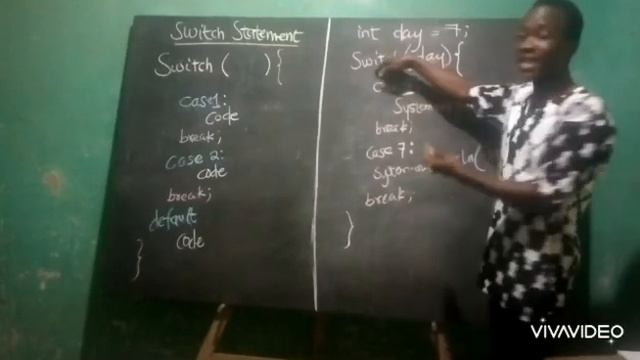 Switch Statement
Switch ( ) {
case1:
code
break;
case 2:
code
break;
default
code
}
int day = 7;
Switch (day) {
System
break;
case 7:
ln(
break;
}
VIVAVIDEO